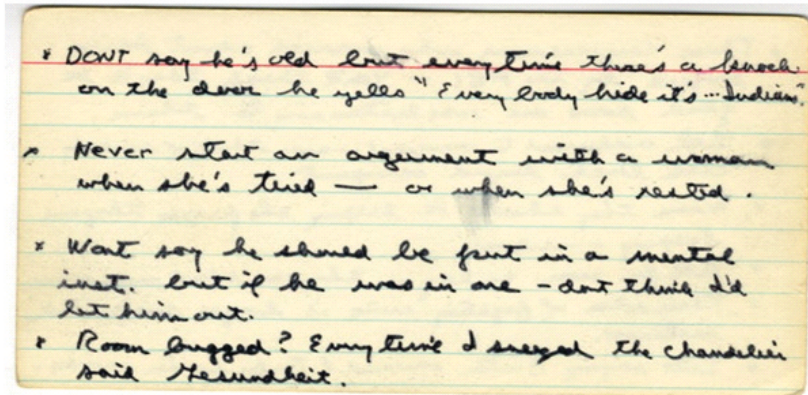 * DONT say he's old but everytime there's a knock
on the door he yells "Every body hide it's ... Indians."
* Never start an argument with a woman
when she's tired — or when she's rested.
* Wont say he should be put in a mental
inst. but if he was in one - dont think I'd
let him out.
* Room bugged? Everytime I sneezed the chandelier
said Gesundheit.